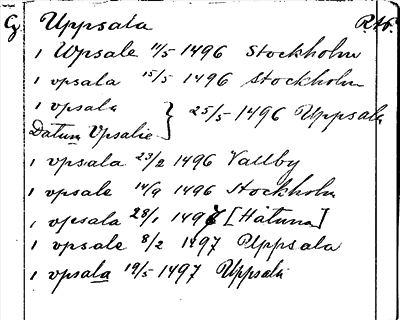 G Uppsala RAP.
i Wpsale 11/5 1496 Stockholm
i vpsala 15/5 1496 Stockholm
i vpsala } 25/5 1496 Uppsala
Datum Vpsalie
i vpsala 23/2 1496 Vallby
i vpsale 14/9 1496 Stockholm
i vpsala 28/1 1497 [Håtuna]
i vpsale 8/2 1497 Uppsala
i vpsala 19/5 1497 Uppsala